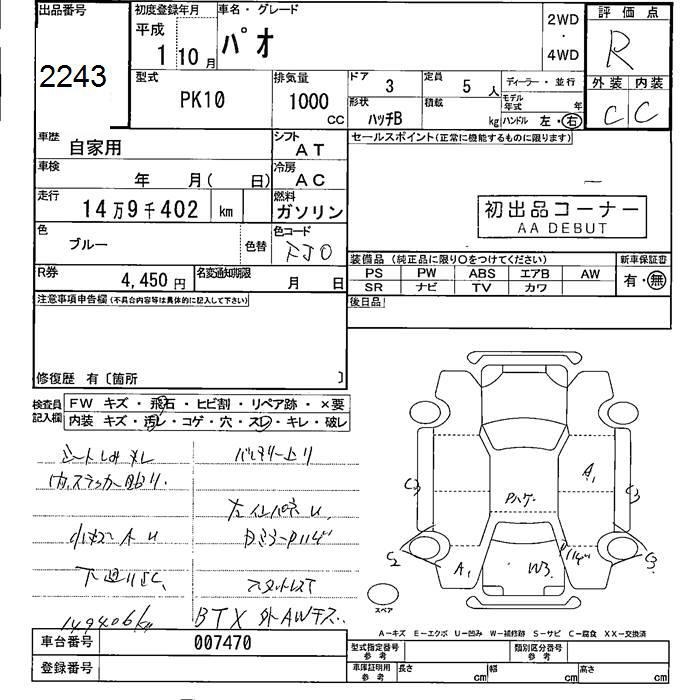 出品番号
2243
初度登録年月
平成
1 10 月
車名・グレード
パオ
2WD
・
4WD
評価点
R
外装 内装
C C
型式
PK10
排気量
1000
CC
ドア 3
定員 5 人
ディーラー・並行
形状 ハッチB
積載 kg
モデル年式 年
ハンドル 左・右
車歴 自家用
シフト AT
セールスポイント(正常に機能するものに限ります)
車検 年 月( 日)
冷房 AC
走行 14万9千402 km
燃料 ガソリン
初出品コーナー
AA DEBUT
色 ブルー 色替
色コード FJ0
装備品(純正品に限り○をつけてください)
新車保証書
PS PW ABS エアB AW
SR ナビ TV カワ
有・無
R券 4,450円
名変通知期限 月 日
後日品!
注意事項申告欄(不具合内容等は具体的に記入して下さい)
修復歴 有〔箇所 〕
検査員記入欄
FW キズ・飛石・ヒビ割・リペア跡・×要
内装 キズ・汚レ・コゲ・穴・スレ・キレ・破レ
シートしみ メレ
内、ステッカー貼り.
149406km
BTX 外AWキズ..
A1
C3
C3
C2
A1
W3
C3
スペア
A-キズ E-エクボ U-凹み W-補修跡 S-サビ C-腐食 XX-交換済
車台番号 007470
登録番号
型式指定番号 参考
類別区分番号 参考
車庫証明用 参考
長さ cm
幅 cm
高さ cm